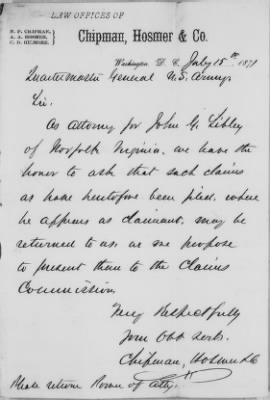 LAW OFFICES OF
Chipman, Hosmer & Co.
N. P. CHIPMAN,
A. A. HOSMER,
C. D. GILMORE.
Washington, D. C. July 15th 1871
Quartermaster General U.S. Army.
Sir.
As attorney for John G. Libley
of Norfolk Virginia, we have the
honor to ask that such claims
as have heretofore been filed, where
he appears as claimant, may be
returned to us, as we propose
to present them to the Claims
Commission.
Very Respectfully
Your Obt Servts.
Chipman, Hosmer & Co
Please return Power of Atty.